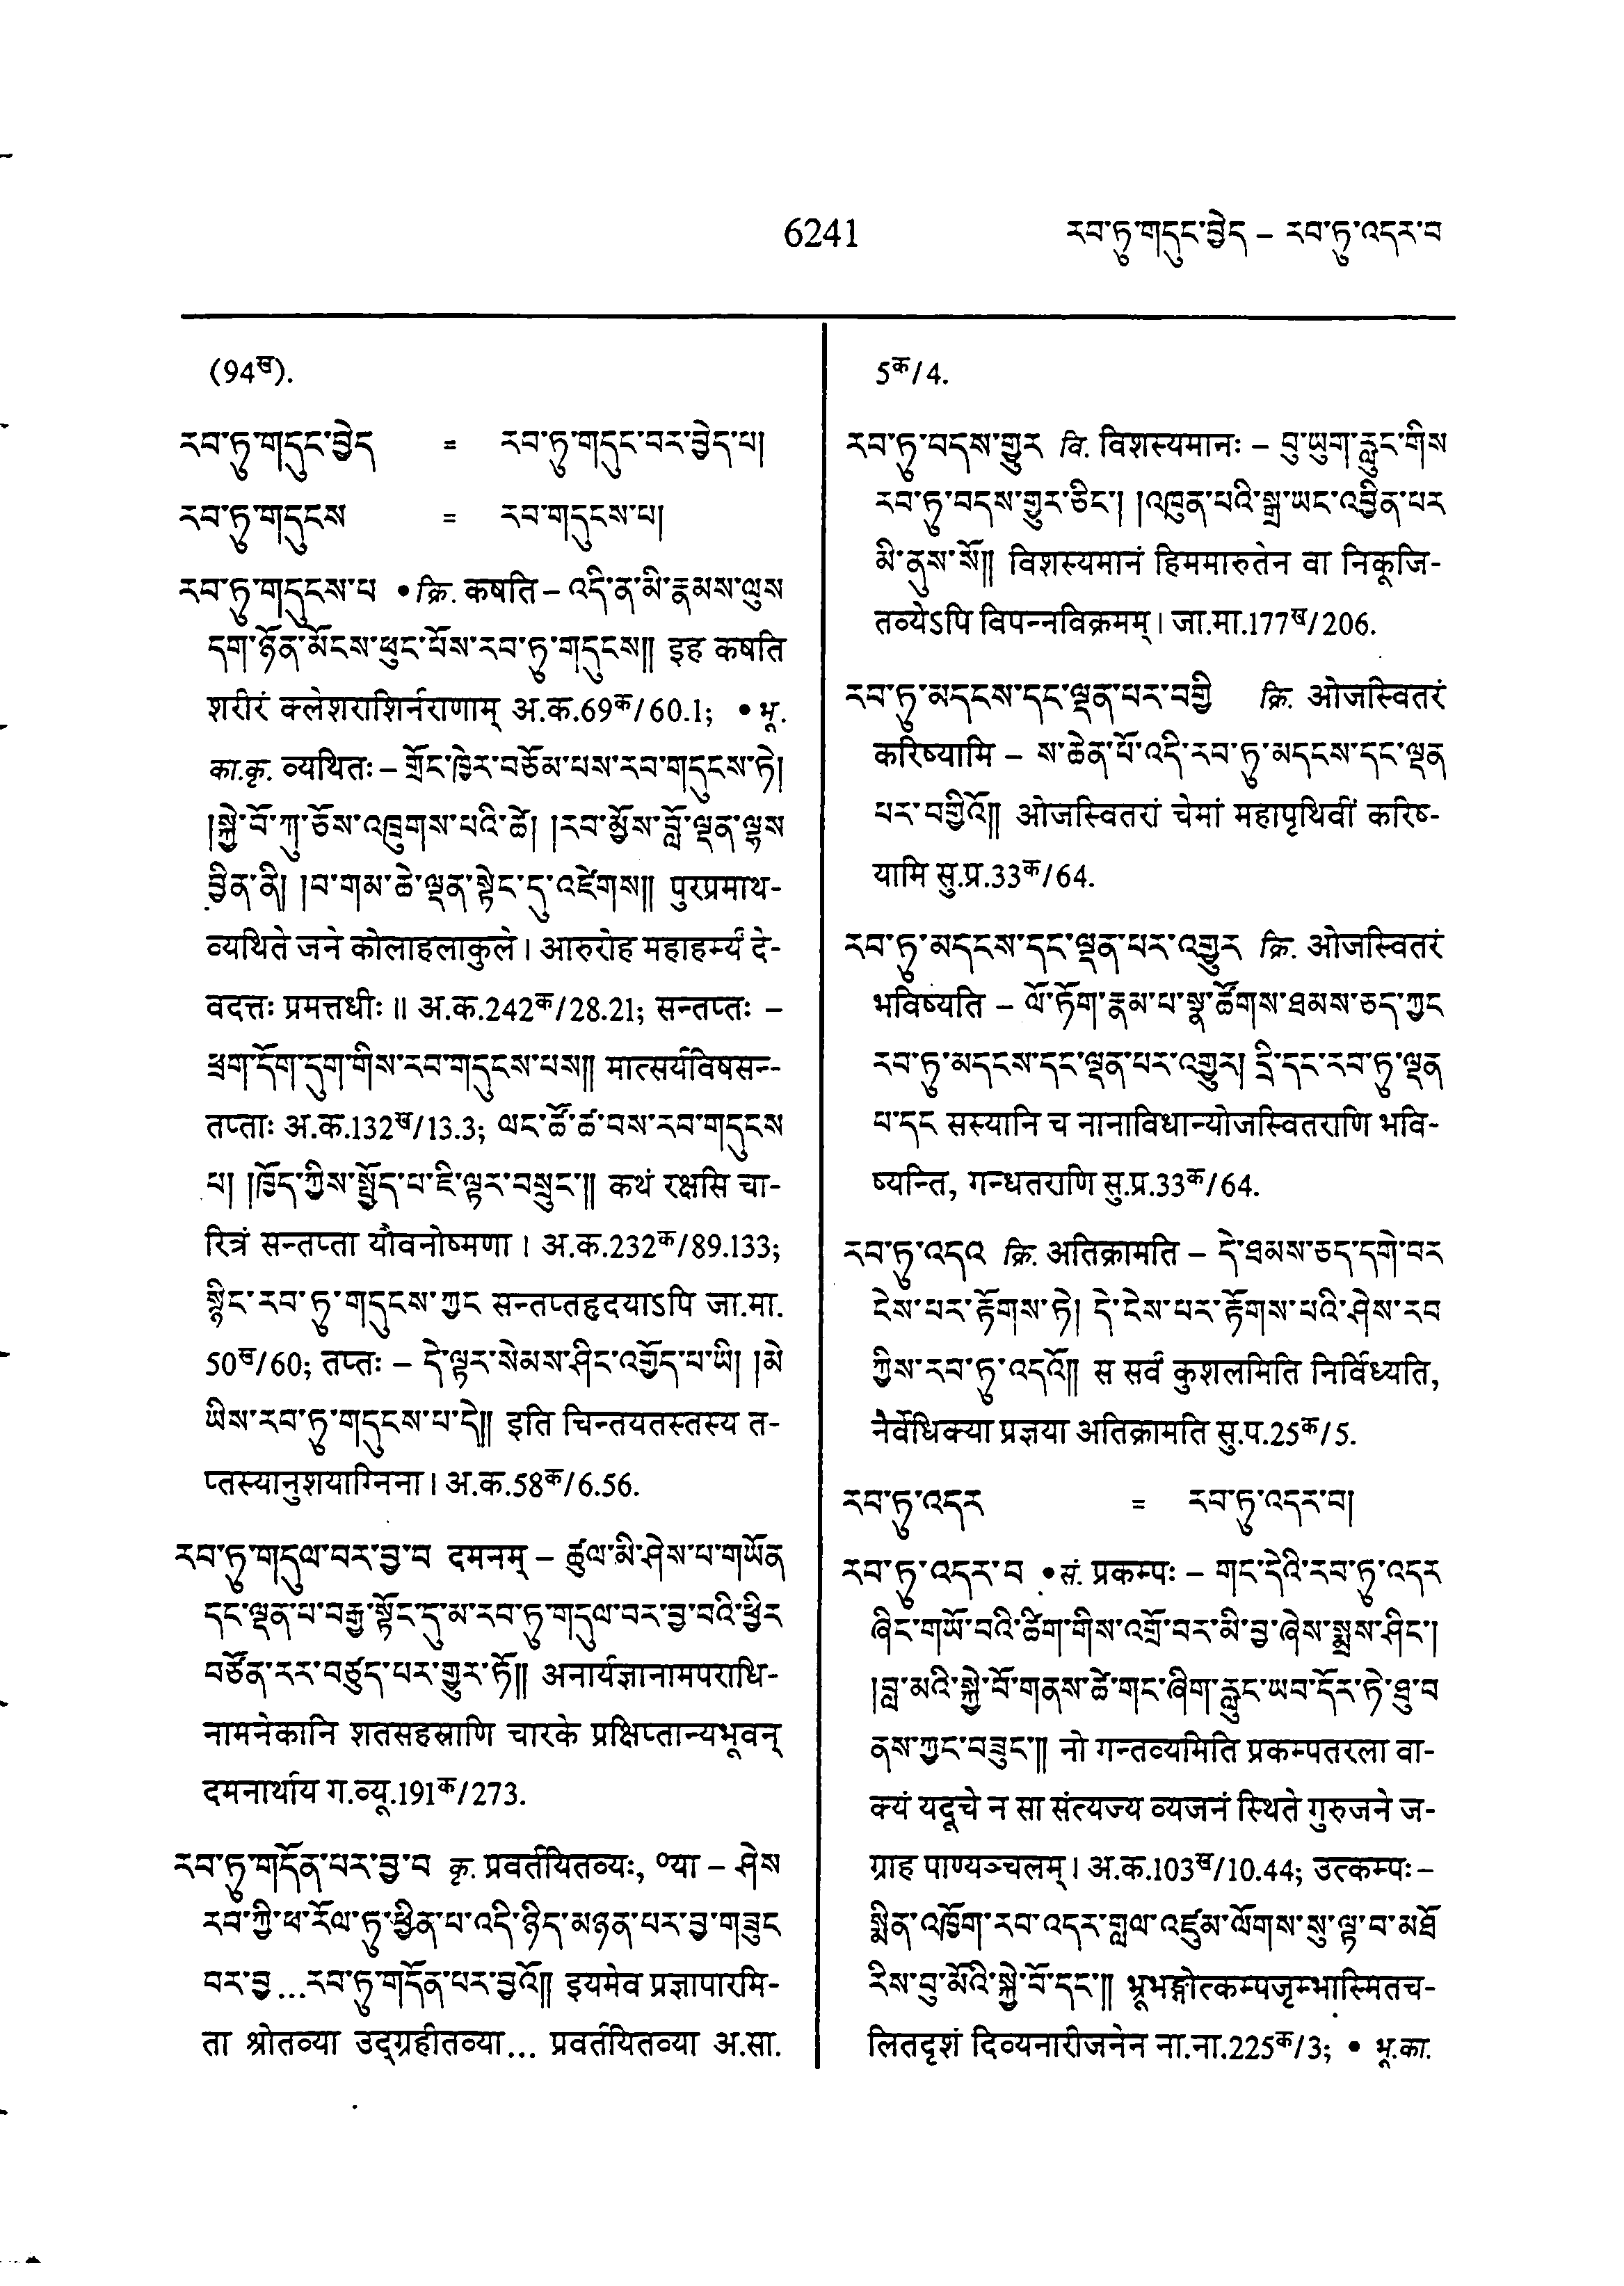 6241 རབ་ཏུ་གདུང་བྱེད – རབ་ཏུ་འདར་བ
(94ख).
རབ་ཏུ་གདུང་བྱེད = རབ་ཏུ་གདུང་བར་བྱེད་པ།
རབ་ཏུ་གདུངས = རབ་གདུངས་པ།
རབ་ཏུ་གདུངས་པ • क्रि. कषति – འདི་ན་མི་རྣམས་ལུས
དག་ཉོན་མོངས་ཕུང་པོས་རབ་ཏུ་གདུངས༎ इह कषति
शरीरं क्लेशराशिर्नराणाम् अ.क.69क/60.1; • भू.
का.कृ. व्यथितः – གྲོང་ཁྱེར་བཅོམ་པས་རབ་གདུངས་ཏེ།
།སྐྱེ་བོ་ཀུ་ཅོས་འཁྲུགས་པའི་ཚེ། །རབ་མྱོས་བློ་ལྡན་ལྷས
བྱིན་ནི། །བ་གམ་ཆེ་ལྡན་སྟེང་དུ་འཛེགས༎ पुरप्रमाथ-
व्यथिते जने कोलाहलाकुले। आरुरोह महाहर्म्यं दे-
वदत्तः प्रमत्तधीः॥ अ.क.242क/28.21; सन्तप्तः –
ཕྲག་དོག་དུག་གིས་རབ་གདུངས་པས༎ मात्सर्यविषसन्-
तप्ताः अ.क.132ख/13.3; ལང་ཚོ་ཚ་བས་རབ་གདུངས
པ། །ཁྱོད་ཀྱིས་སྤྱོད་པ་ཇི་ལྟར་བསྲུང་༎ कथं रक्षसि चा-
रित्रं सन्तप्ता यौवनोष्मणा। अ.क.232क/89.133;
སྙིང་རབ་ཏུ་གདུངས་ཀྱང सन्तप्तहृदयाऽपि जा.मा.
50ख/60; तप्तः – དེ་ལྟར་སེམས་ཤིང་འགྱོད་པ་ཡི། །མེ
ཡིས་རབ་ཏུ་གདུངས་པ་དེ༎ इति चिन्तयतस्तस्य त-
प्तस्यानुशयाग्निना। अ.क.58क/6.56.
རབ་ཏུ་གདུལ་བར་བྱ་བ दमनम् – ཚུལ་མི་ཤེས་པ་གཡོན
དང་ལྡན་པ་བརྒྱ་སྟོང་དུ་མ་རབ་ཏུ་གདུལ་བར་བྱ་བའི་ཕྱིར
བཙོན་རར་བཙུད་པར་གྱུར་ཏོ༎ अनार्यज्ञानामपराधि-
नामनेकानि शतसहस्राणि चारके प्रक्षिप्तान्यभूवन्
दमनार्थाय ग.व्यू.191क/273.
རབ་ཏུ་གདོན་པར་བྱ་བ कृ. प्रवर्तयितव्यः, ०या – ཤེས
རབ་ཀྱི་ཕ་རོལ་ཏུ་ཕྱིན་པ་འདི་ཉིད་མཉན་པར་བྱ་གཟུང
བར་བྱ...རབ་ཏུ་གདོན་པར་བྱའོ༎ इयमेव प्रज्ञापारमि-
ता श्रोतव्या उद्ग्रहीतव्या... प्रवर्तयितव्या अ.सा.
5क/4.
རབ་ཏུ་བདས་གྱུར वि. विशस्यमानः – བུ་ཡུག་རླུང་གིས
རབ་ཏུ་བདས་གྱུར་ཅིང་། །འཁུན་པའི་སྒྲ་ཡང་འབྱིན་པར
མི་ནུས་སོ༎ विशस्यमानं हिममारुतेन वा निकूजि-
तव्येऽपि विपन्नविक्रमम्। जा.मा.177ख/206.
རབ་ཏུ་མདངས་དང་ལྡན་པར་བགྱི क्रि. ओजस्वितरं
करिष्यामि – ས་ཆེན་པོ་འདི་རབ་ཏུ་མདངས་དང་ལྡན
པར་བགྱིའོ༎ ओजस्वितरां चेमां महापृथिवीं करिष-
यामि सु.प्र.33क/64.
རབ་ཏུ་མདངས་དང་ལྡན་པར་འགྱུར क्रि. ओजस्वितरं
भविष्यति – ལོ་ཏོག་རྣམ་པ་སྣ་ཚོགས་ཐམས་ཅད་ཀྱང
རབ་ཏུ་མདངས་དང་ལྡན་པར་འགྱུར། དྲི་དང་རབ་ཏུ་ལྡན
པ་དང सस्यानि च नानाविधान्योजस्वितराणि भवि-
ष्यन्ति, गन्धतराणि सु.प्र.33क/64.
རབ་ཏུ་འདའ क्रि. अतिक्रामति – དེ་ཐམས་ཅད་དགེ་བར
ངེས་པར་རྟོགས་ཏེ། དེ་ངེས་པར་རྟོགས་པའི་ཤེས་རབ
ཀྱིས་རབ་ཏུ་འདའོ༎ स सर्वं कुशलमिति निर्विध्यति,
नैर्वेधिक्या प्रज्ञया अतिक्रामति सु.प.25क/5.
རབ་ཏུ་འདར = རབ་ཏུ་འདར་བ།
རབ་ཏུ་འདར་བ • सं. प्रकम्पः – གང་དེའི་རབ་ཏུ་འདར
ཞིང་གཡོ་བའི་ཚིག་གིས་འགྲོ་བར་མི་བྱ་ཞེས་སྨྲས་ཤིང་།
།བླ་མའི་སྐྱེ་བོ་གནས་ཚེ་གང་ཞིག་རླུང་ཡབ་དོར་ཏེ་ཐུ་བ
ནས་ཀྱང་བཟུང་༎ नो गन्तव्यमिति प्रकम्पतरला वा-
क्यं यदूचे न सा संत्यज्य व्यजनं स्थिते गुरुजने ज-
ग्राह पाण्यञ्चलम्। अ.क.103ख/10.44; उत्कम्पः –
སྨིན་འཁྱོག་རབ་འདར་གླལ་འཛུམ་ལོགས་སུ་ལྟ་བ་མཐོ
རིས་བུ་མོའི་སྐྱེ་བོ་དང་༎ भ्रूभङ्गोत्कम्पजृम्भास्मितच-
लितदृशं दिव्यनारीजनेन ना.ना.225क/3; • भू.का.